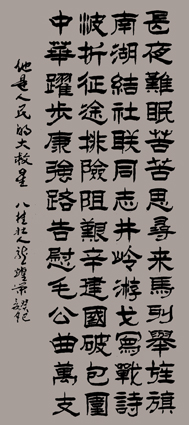 長夜難眠苦苦思尋來馬列舉旌旗
南湖結社聯同志井岭游戈寫戰詩
波折征途排險阻艱辛建國破包圍
中華躍步康強路告慰毛公曲萬支
他是人民的大救星 八桂壯人